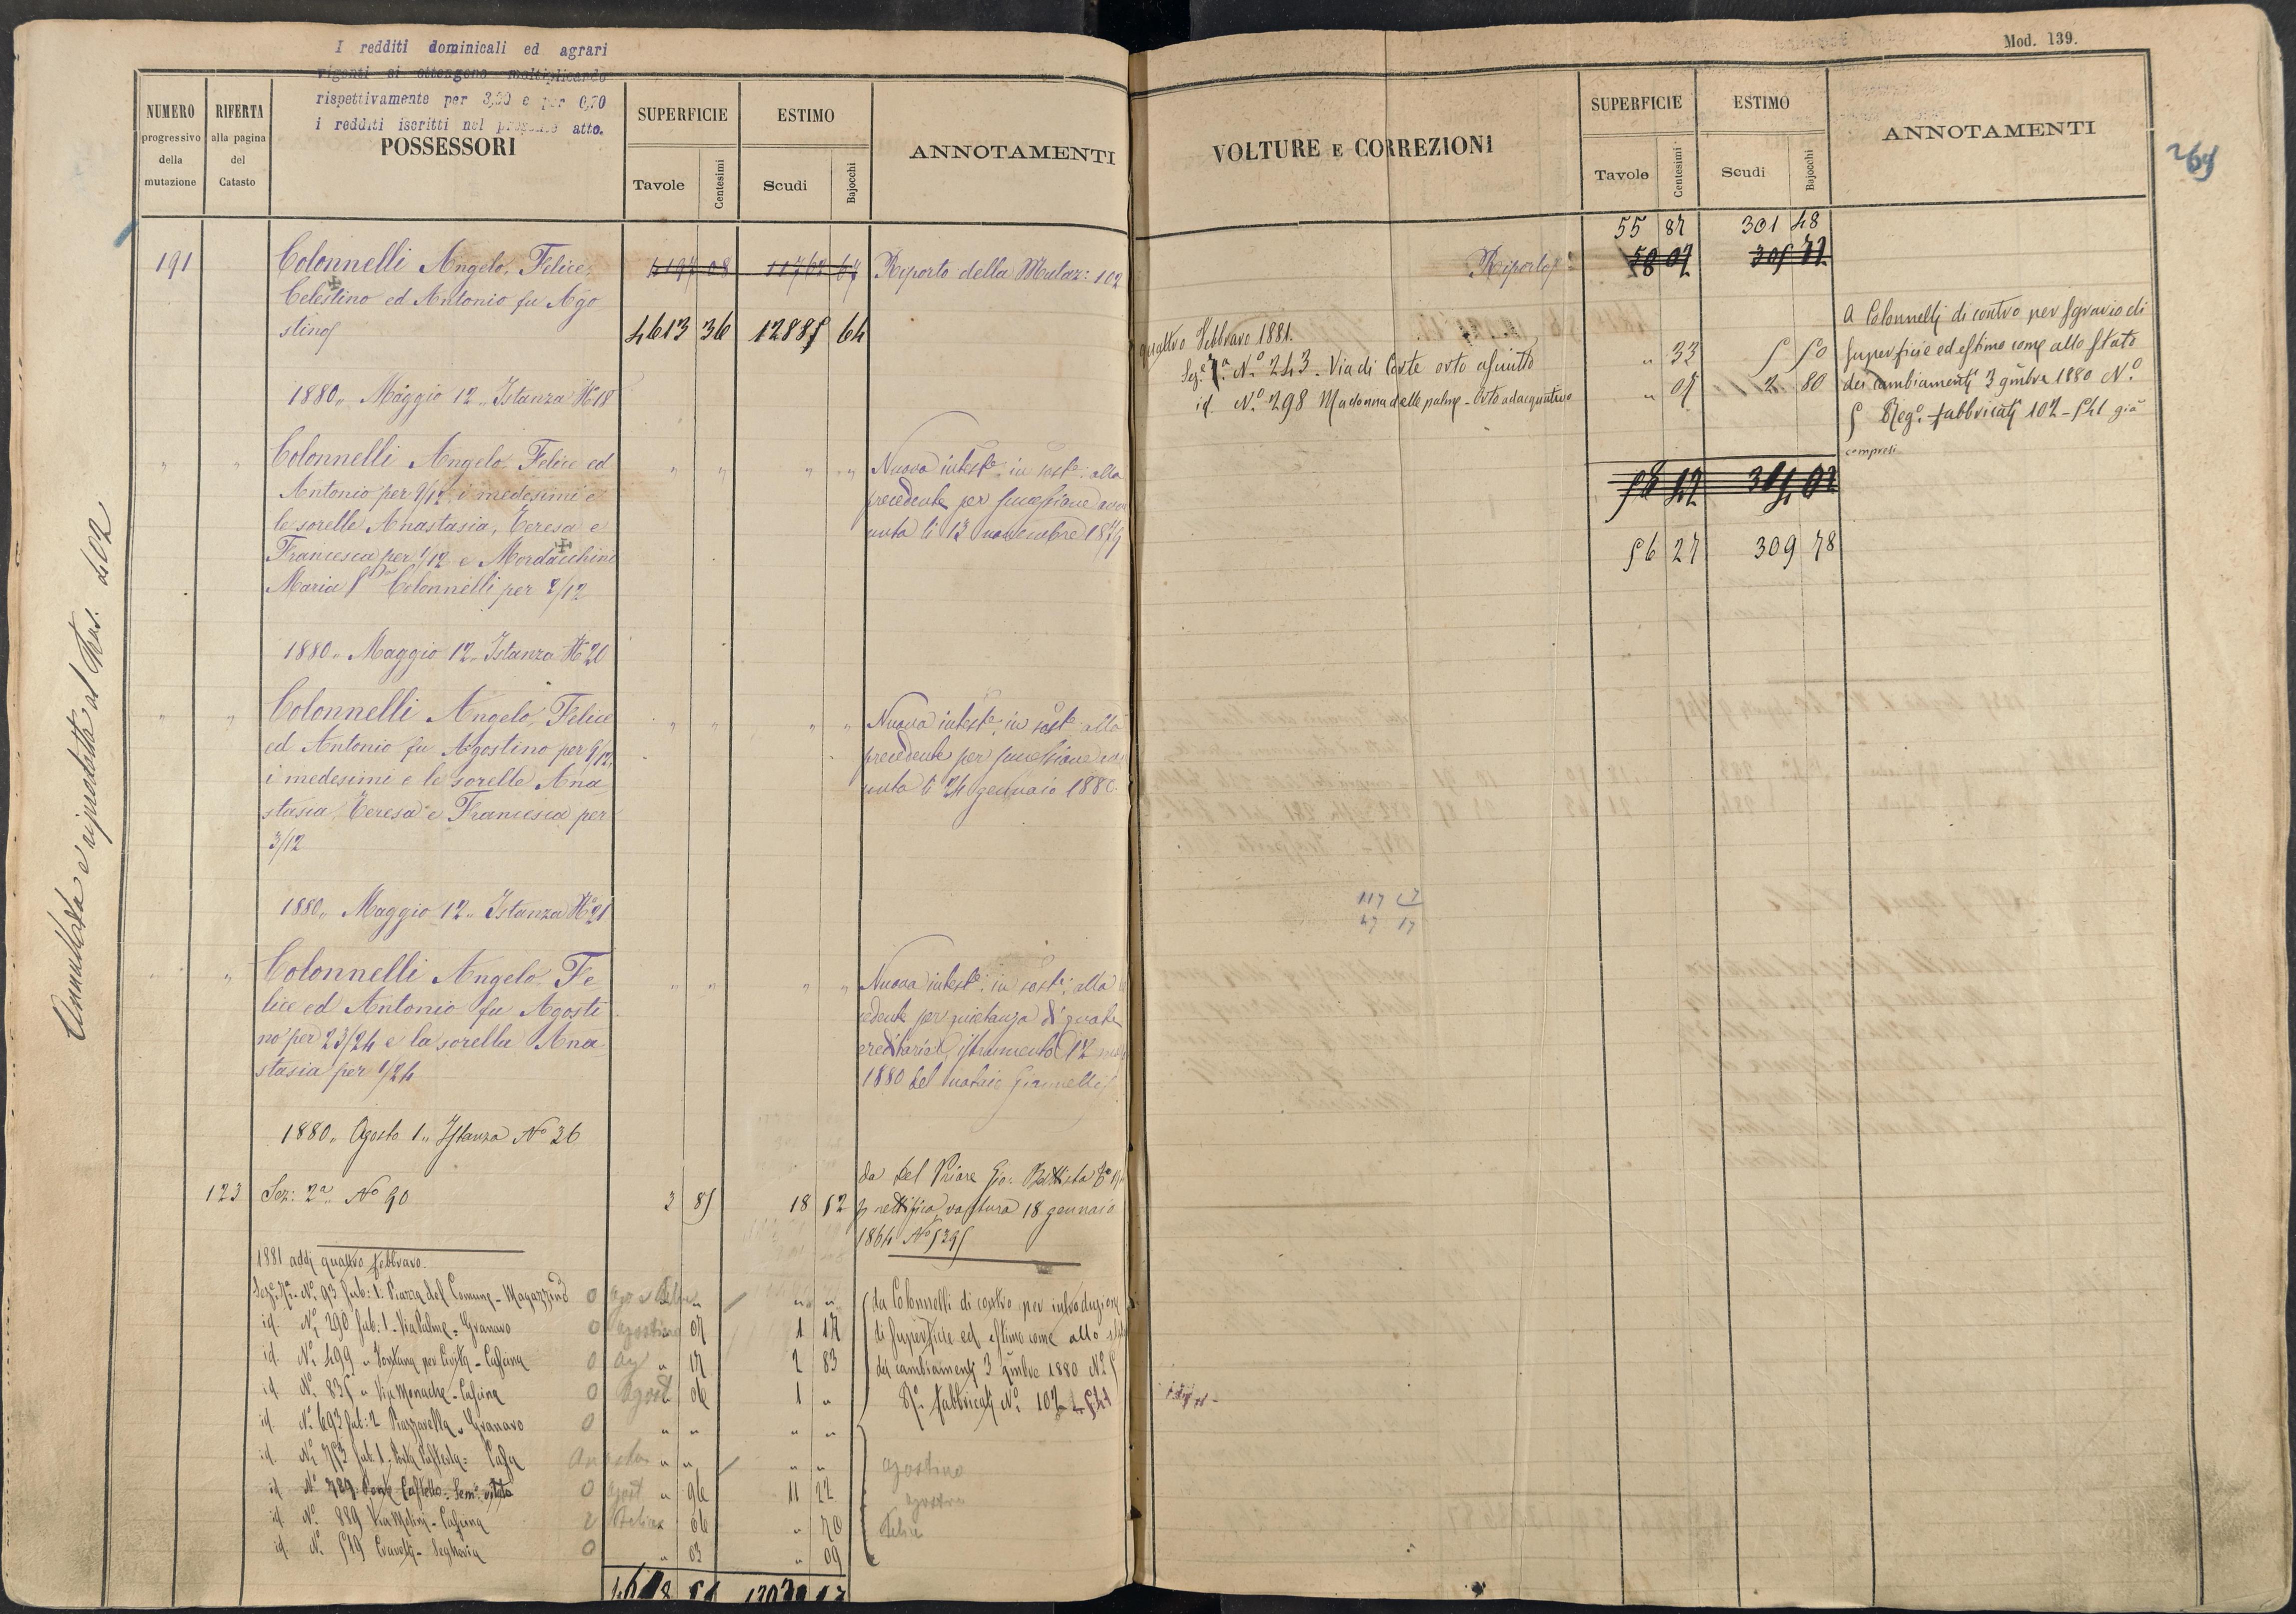 I redditi dominicali ed agrari
vigenti si ottengono moltiplicando
rispettivamente per 3,20 e per 0,70
i redditi iscritti nel presente atto.
NUMERO progressivo della mutazione
RIFERTA alla pagina del Catasto
POSSESSORI
SUPERFICIE
Tavole Centesimi
ESTIMO
Scudi Bajocchi
ANNOTAMENTI
191 Colonnelli Angelo, Felice, 11767 67 Riporto della Mutaz: 102
Celestino ed Antonio fu Ago
stino 4613 36 12885 64
1880,, Maggio 12,, Istanza N° 18
" " Colonnelli Angelo, Felice ed " " " " Nuova intest.e in sost.e alla
Antonio per 9/12 i medesimi e precedente per successione avve
le sorelle Anastasia, Teresa e nuta li 13 novembre 1879
Francesca per 1/12 e Mordacchini
Maria V.va Colonnelli per 2/12
1880,, Maggio 12,, Istanza N° 20
" " Colonnelli Angelo, Felice " " " " Nuova intest.e in sost.e alla
ed Antonio fu Agostino per 9/12, precedente per successione
i medesimi e le sorelle Ana nuta li 24 gennaio 1880
stasia, Teresa e Francesca per
3/12
1880,, Maggio 12,, Istanza N° 21
" Colonnelli Angelo, Fe " " " " Nuova intest.e in sost.e alla
lice ed Antonio fu Agosti cedente per quietanza di quota
no per 23/24 e la sorella Ana ereditaria, istrumento 12
stasia per 1/24 1880 del notaio Giannelli
1880,, Agosto 1,, Istanza N° 36
da Del Priore Gio: Battista
123 Sez: 2a N° 90 3 85 18 52 p rettifica voltura 18 gennaio
1864 N° 5395
1881 addi quattro febbraio.
Sez. 7a N° 93 sub: 1. Piazza del Comune - Magazzino 0 " " "
id. N° 290 sub: 1 - Via Palme - Granaro 0 agostino 07 1 17
id. N° 499 " Fontana per Civita - Cascina 0 Ag " 17 2 83
id. N° 835 " Via Monache - Cascina 0 Agost 06 1 "
id. N° 693 sub: 2 Piazzarella - Granaro 0 " " " "
id. N° 753 sub. 1 - - Casa " " " "
id. N° 789 - Sem.o vitato 0 agost " 96 11 22
id. N° 889 Via Molini - Cascina 2 Felice 06 " 70
id. N° 519 - 0 " 03 " 09
da Colonnelli di contro per introduzione
di superficie ed estimo come allo
dei cambiamenti 3 9mbre 1880 N° 5
R.o fabbricati N° 102 - 541
agostino
agostino
Felice
Annullata e riprodotta al Tras. 402
Mod. 139.
VOLTURE E CORREZIONI
SUPERFICIE
Tavole Centesimi
ESTIMO
Scudi Bajocchi
ANNOTAMENTI
269
55 87 301 48
Riporto 58 07 305 72
quattro Febbraio 1881.
Sez.e 7.a N° 243 - Via di Corte orto asciutto " 33 5 50
id. N° 298 Madonna delle palme - Orto adacquativo " 07 2 80
A Colonnelli di contro per sgravio di
superficie ed estimo come allo stato
dei cambiamenti 3 9mbre 1880 N°
5 Reg.o fabbricati 102 - 541 già
compresi
56 27 309 78
117 17
47 17